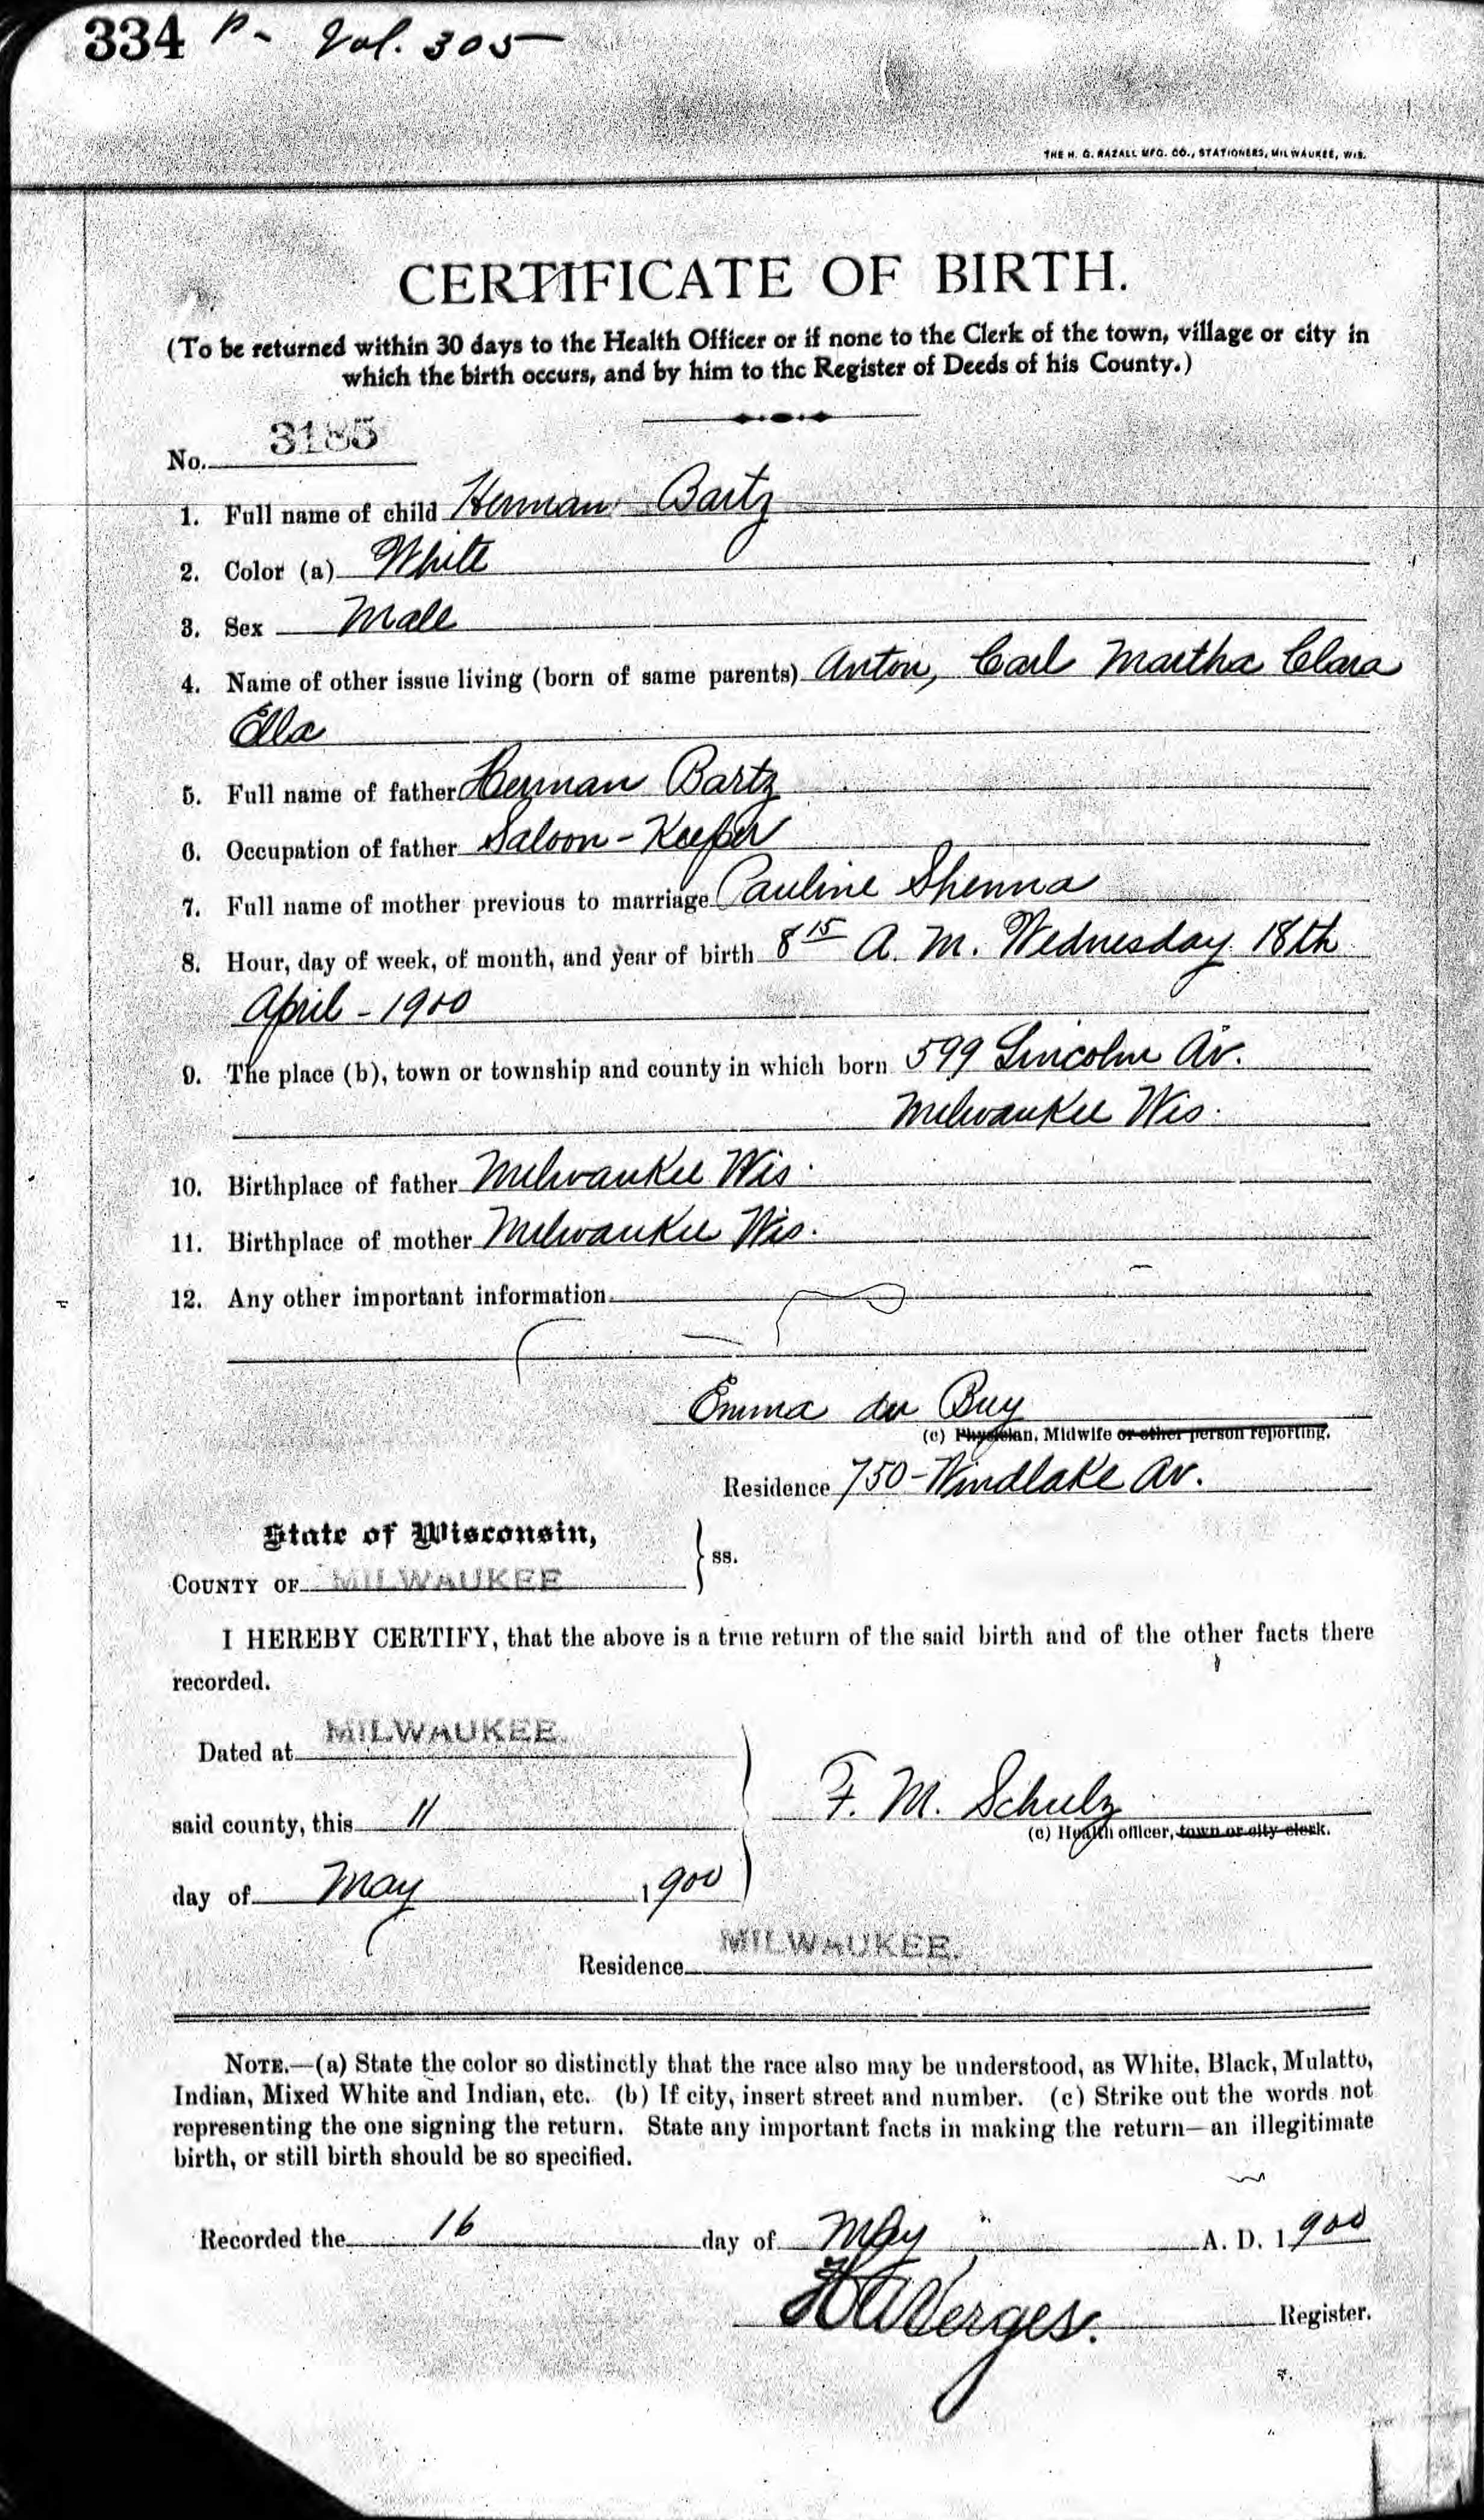 334 P- Vol. 305
THE H. G. RAZALL MFG. CO., STATIONERS, MILWAUKEE, WIS.
CERTIFICATE OF BIRTH.
(To be returned within 30 days to the Health Officer or if none to the Clerk of the town, village or city in
which the birth occurs, and by him to the Register of Deeds of his County.)
No. 3185
1. Full name of child Herman Bartz
2. Color (a) White
3. Sex Male
4. Name of other issue living (born of same parents) Anton, Carl Martha Clara
Ella
5. Full name of father Herman Bartz
6. Occupation of father Saloon-Keeper
7. Full name of mother previous to marriage Pauline Shenna
8. Hour, day of week, of month, and year of birth 8 15 A. M. Wednesday 18th
April - 1900
9. The place (b), town or township and county in which born 599 Lincoln Av.
Milwaukee Wis.
10. Birthplace of father Milwaukee Wis.
11. Birthplace of mother Milwaukee Wis.
12. Any other important information
Emma du Buy
(c) Physician, Midwife or other person reporting.
Residence 750-Windlake Av.
State of Wisconsin,
COUNTY OF MILWAUKEE } ss.
I HEREBY CERTIFY, that the above is a true return of the said birth and of the other facts there
recorded.
Dated at MILWAUKEE.
said county, this 11
F. M. Schulz
(c) Health officer, town or city clerk.
day of May 1900
Residence MILWAUKEE.
NOTE.—(a) State the color so distinctly that the race also may be understood, as White, Black, Mulatto,
Indian, Mixed White and Indian, etc. (b) If city, insert street and number. (c) Strike out the words not
representing the one signing the return. State any important facts in making the return—an illegitimate
birth, or still birth should be so specified.
Recorded the 16 day of May A. D. 1900
H A Verges. Register.